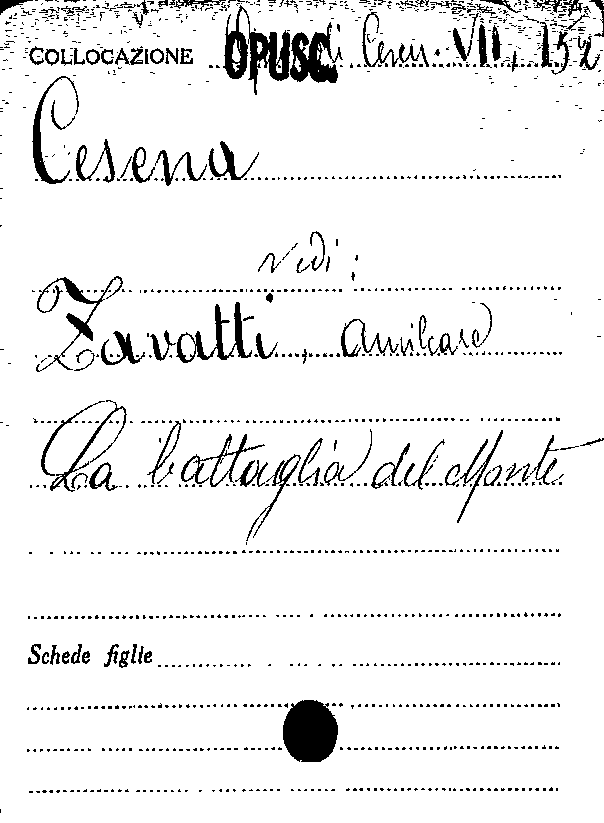 COLLOCAZIONE OPUSC. di Cesen. VII, 152
Cesena
vedi:
Zavatti, Amilcare
La battaglia del Monte
Schede figlie